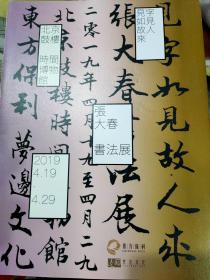 見字如見故人來
張大春書法展
二零一九年四月十九至四月二九
北京鼓樓時間博物館
東方保利 夢邊文化
見字如見故人來
北京鼓樓
時間博物館
張大春
書法展
2019
4.19
-
4.29